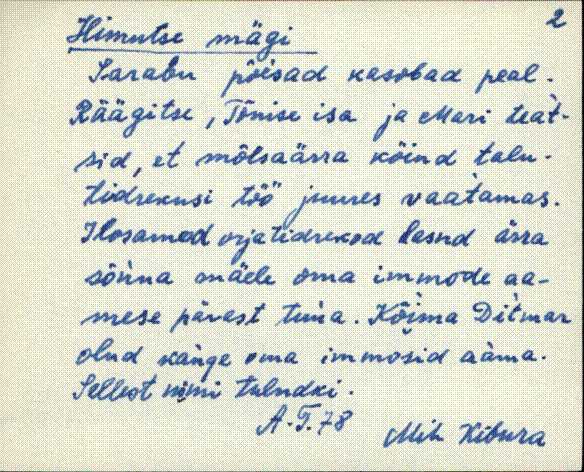 2
Himutse mägi
Sarabu põisad kasobad peal.
Räägitse, Tõnise isa ja Mari teát-
sid, et mõlsaärra köind talu-
tidrekusi töö juures vaatamas.
Ilosamad orjatidrekod lasnd ärra
sõnna mäele oma immode aa-
mese pärast tuua. Köima Ditmar
olud kange oma immosid aama.
Sellest nimi tulndki.
A.T.78
Mih Kibura